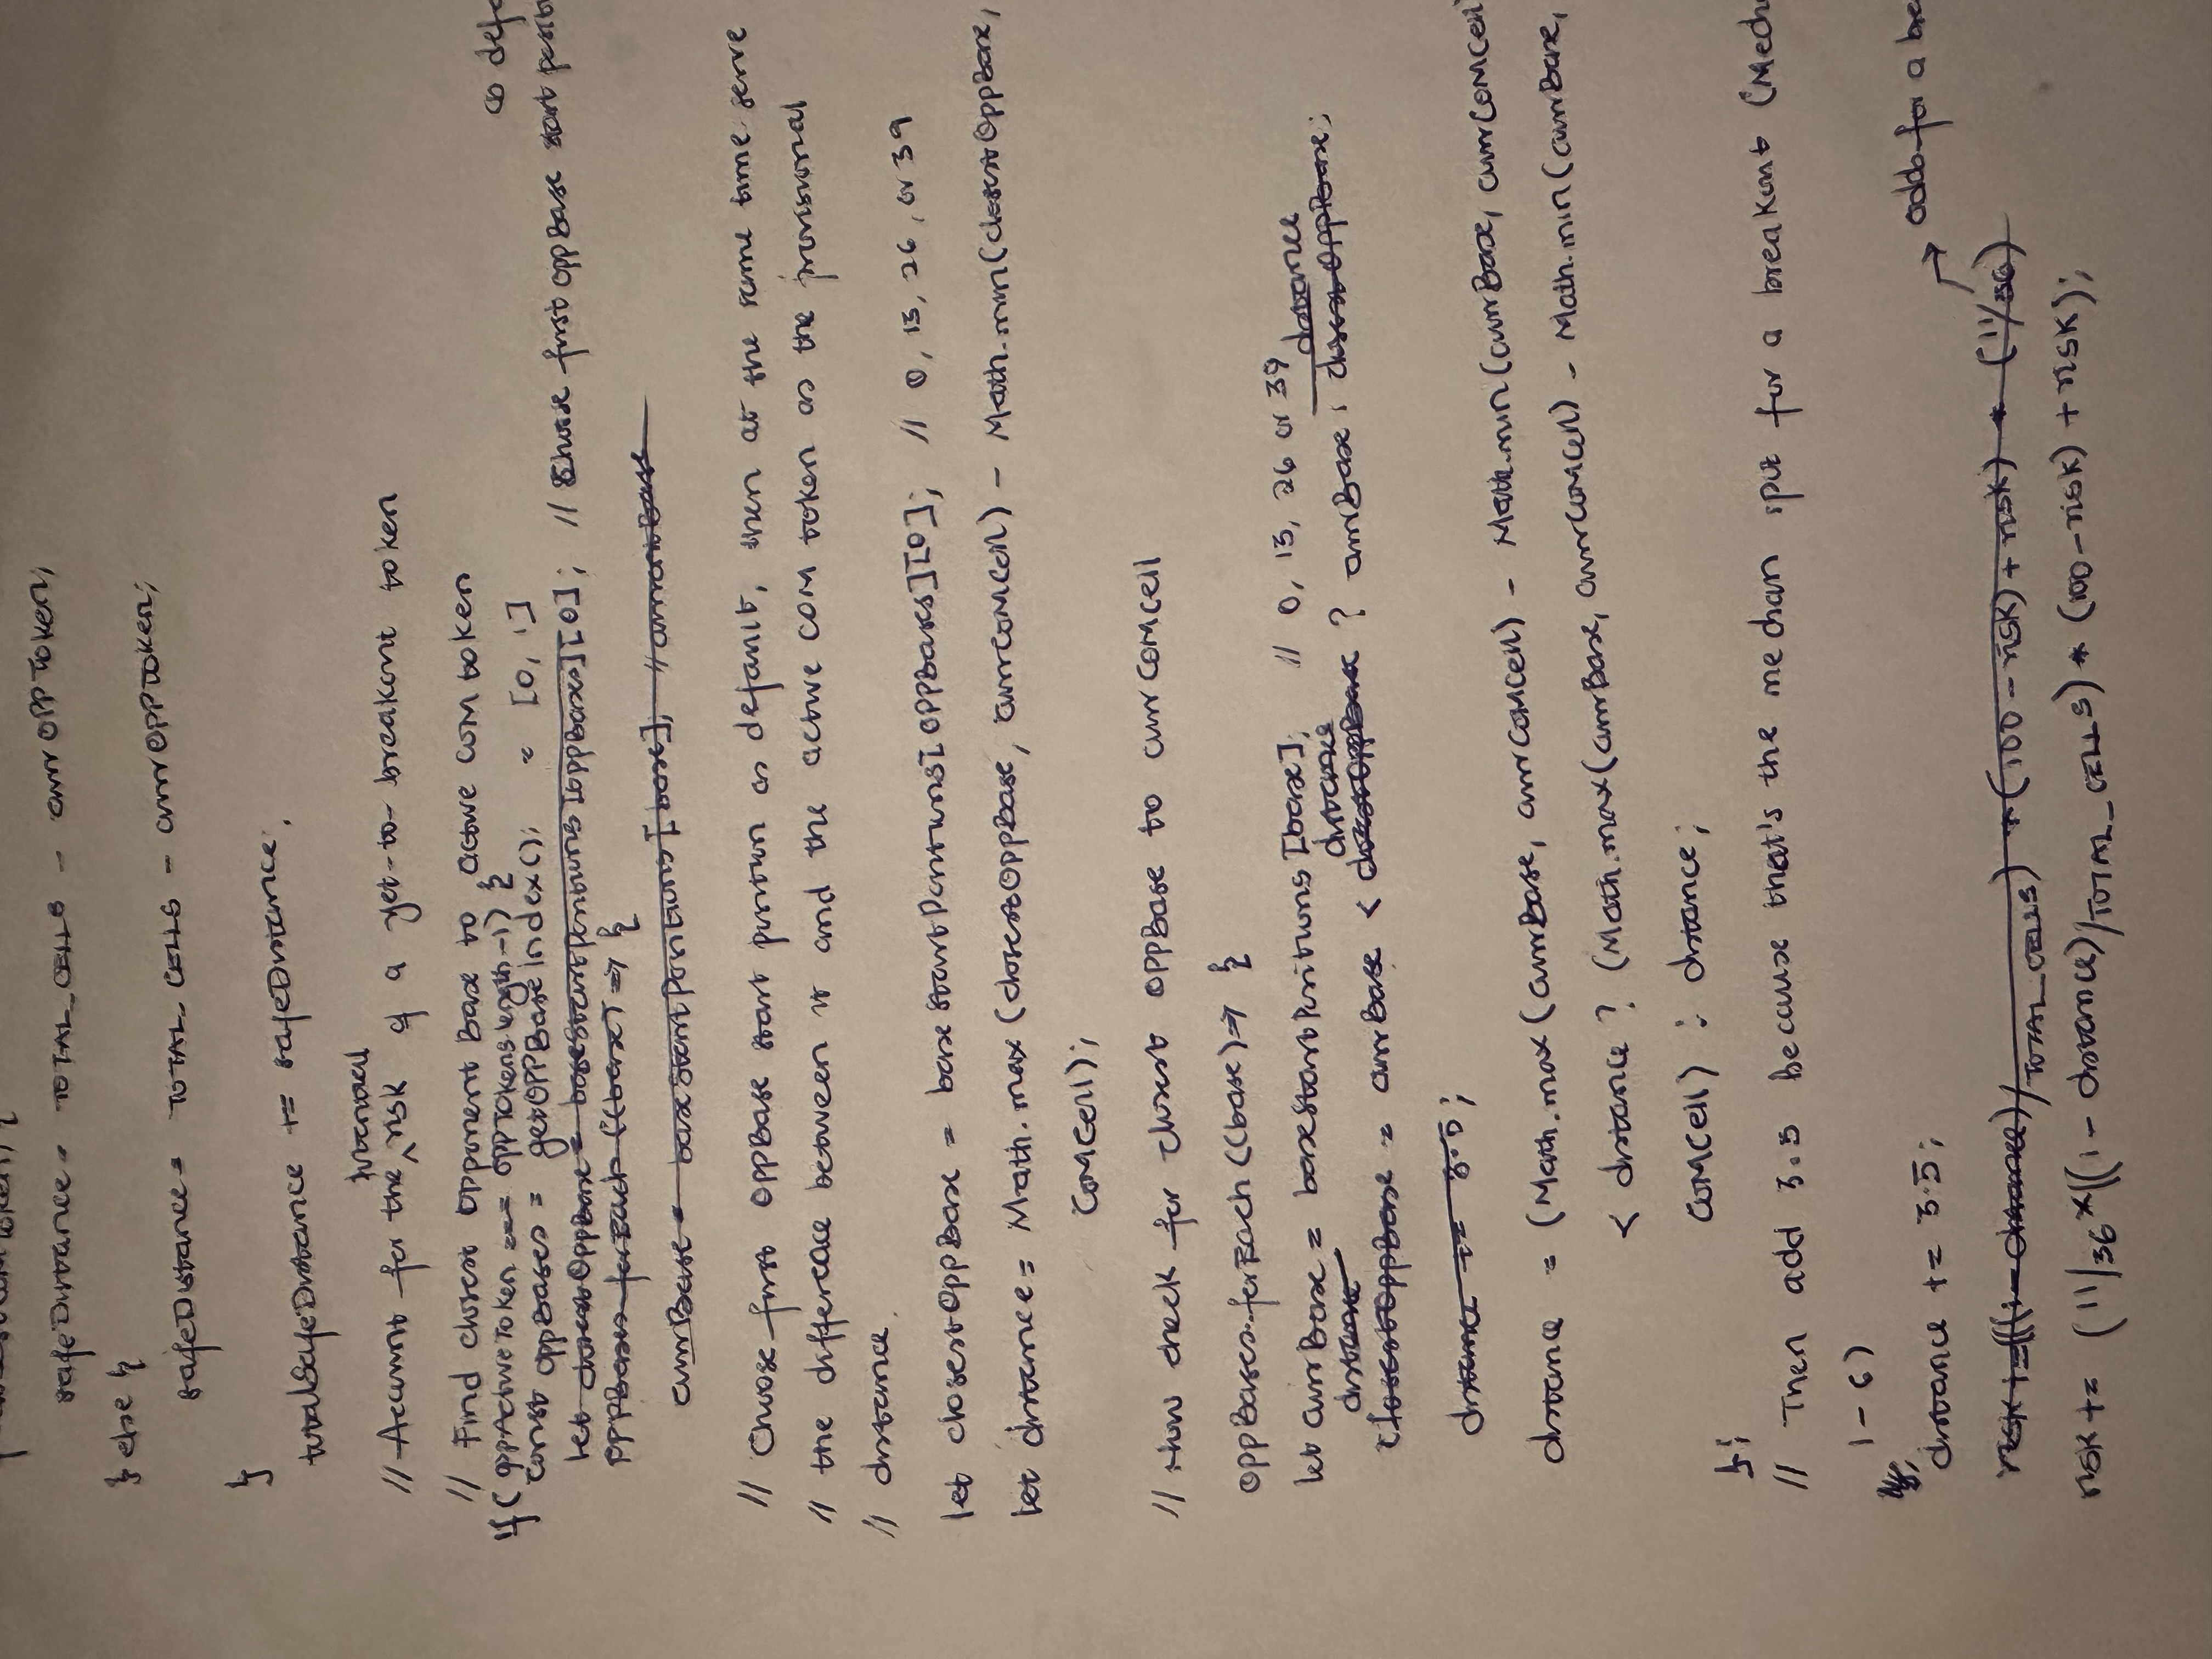 safeDistance = TOTAL_CELLS - currOPPToken;
} else {
safeDistance = TOTAL_CELLS - currOPPToken;
}
totalSafeDistance += safeDistance;
potential
// Account for the ^ risk of a yet-to-breakout token
// Find closest Opponent Base to active COM token
if ( oppActiveToken === OPPTokens.length-1) {
const oppBases = getOPPBaseIndex(); = [0, 1]
let closestOppBase = baseStartPositions[oppBases][0]; // Choose first oppBase start positi
as defa
OPPBases.forEach ((base) => {
currBase = baseStartPositions [base]; // currentBase
// Choose first OPPBase start position as default, then at the same time serve
// the difference between it and the active COM token as the provisional
// distance.
let closestOppBase = baseStartPositions[OPPBases][0]; // 0, 13, 26, or 39
let distance = Math.max (closestOppBase, currCOMCell) - Math.min(closestOppBase,
COMCell);
// Now check for closest OPPBase to currCOMCell
OppBases.forEach ((base) => {
let currBase = baseStartPositions [base]; // 0, 13, 26 or 39
distance distance distance
closestOppBase = currBase < closestOppBase ? currBase : closestOppBase;
distance += 3.5;
distance = (Math.max (currBase, currCOMCell) - Math.min (currBase, currCOMCell)
< distance ? (Math.max (currBase, currCOMCell) - Math.min (currBase,
COMCell) : distance;
};
// Then add 3.5 because that's the median spot for a breakout (Medi
1-6)
distance += 3.5;
odds for a bre
risk +=(((1- distance)/TOTAL_CELLS) * (100-risk) + risk) * (11/36)
risk += (11/36*((1- distance)/TOTAL_CELLS) * (100-risk) + risk);